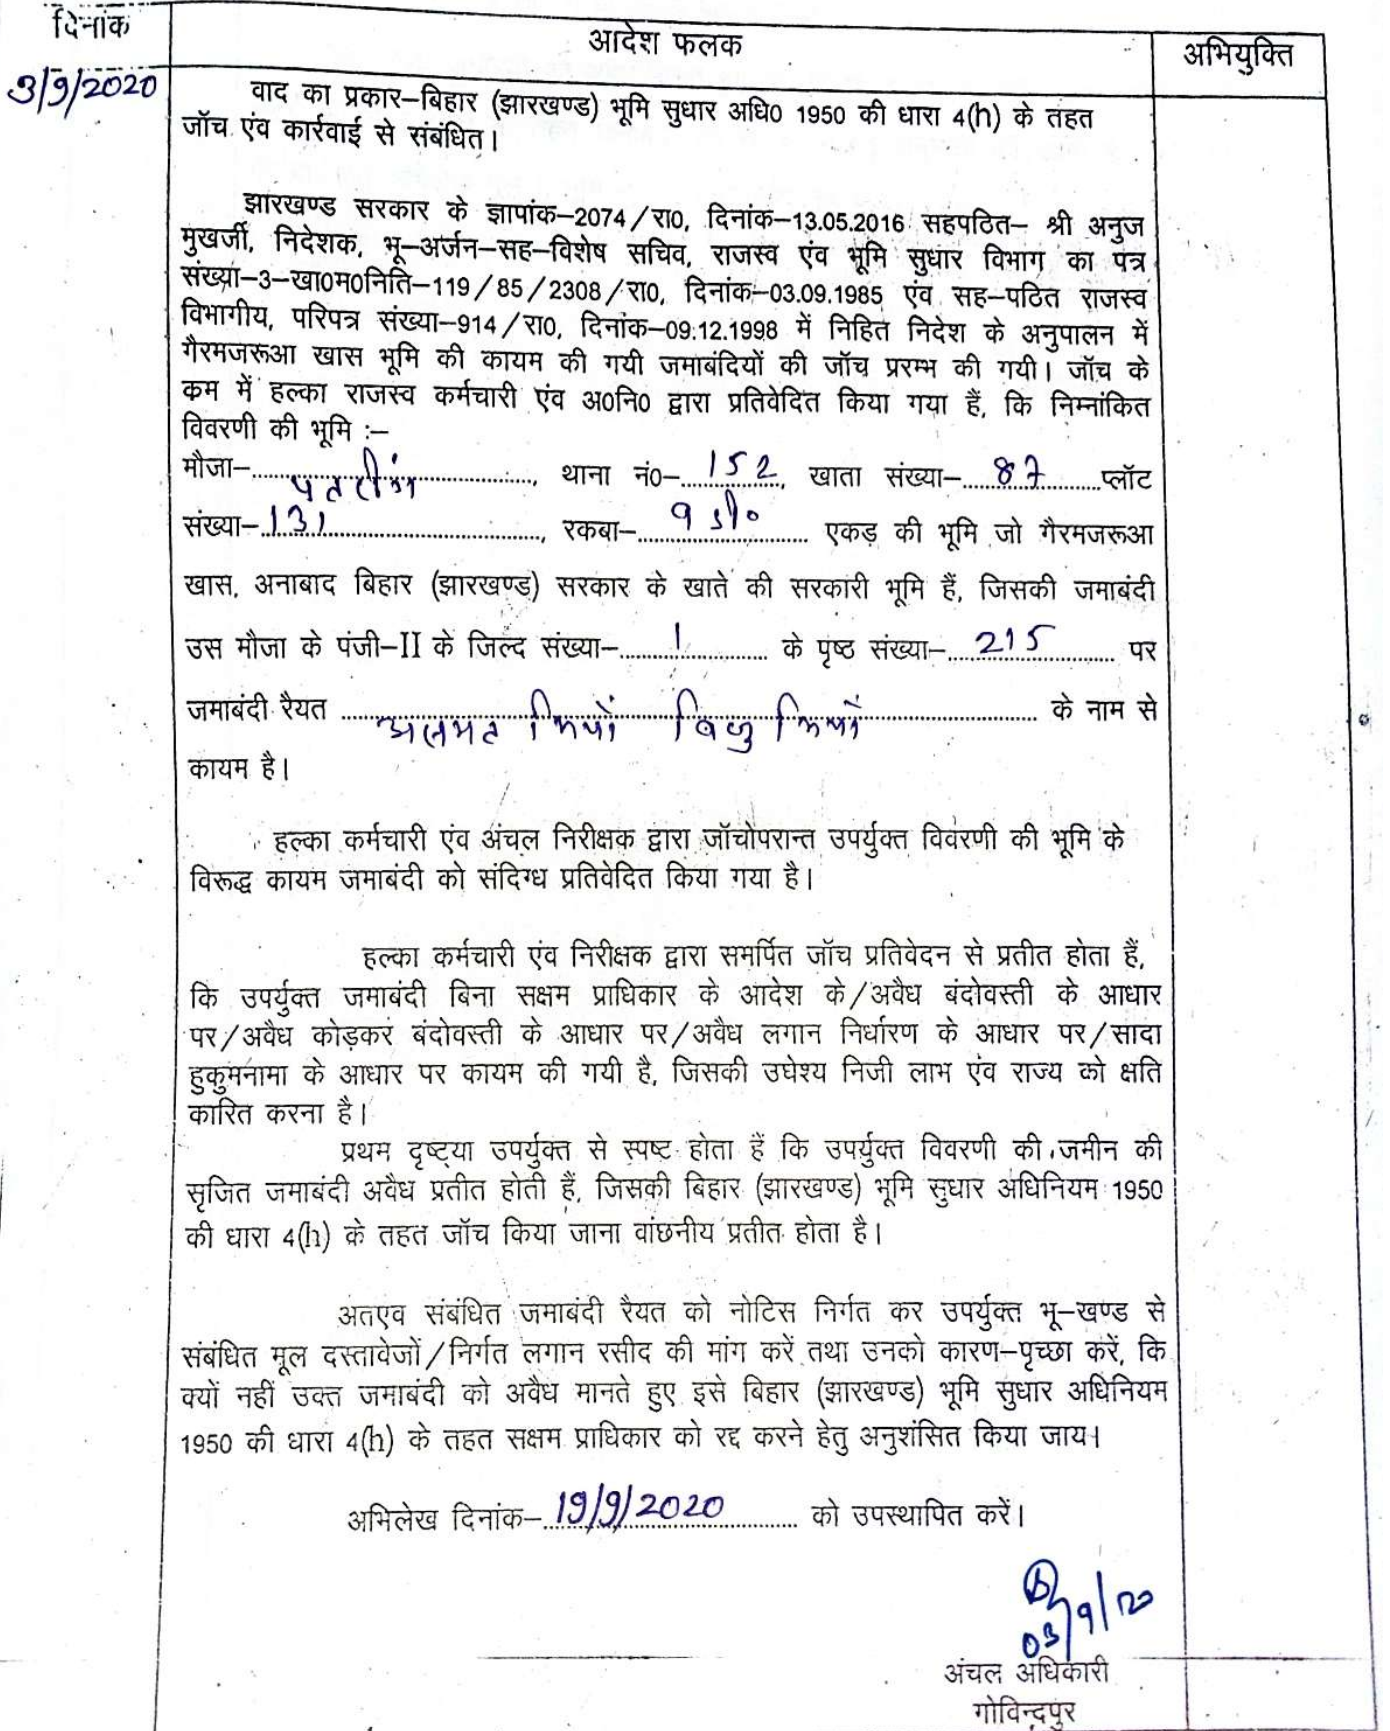 दिनांक
आदेश फलक
अभियुक्ति
3/9/2020
वाद का प्रकार–बिहार (झारखण्ड) भूमि सुधार अधि0 1950 की धारा 4(h) के तहत
जॉच एंव कार्रवाई से संबंधित।
झारखण्ड सरकार के ज्ञापांक–2074/रा0, दिनांक–13.05.2016 सहपठित– श्री अनुज
मुखर्जी, निदेशक, भू–अर्जन–सह–विशेष सचिव, राजस्व एंव भूमि सुधार विभाग का पत्र
संख्या–3–खा0म0निति–119/85/2308/रा0, दिनांक–03.09.1985 एंव सह–पठित राजस्व
विभागीय, परिपत्र संख्या–914/रा0, दिनांक–09.12.1998 में निहित निदेश के अनुपालन में
गैरमजरूआ खास भूमि की कायम की गयी जमाबंदियों की जॉच प्ररम्भ की गयी। जॉच के
कम में हल्का राजस्व कर्मचारी एंव अ0नि0 द्वारा प्रतिवेदित किया गया हैं, कि निम्नांकित
विवरणी की भूमि :–
मौजा–...................., थाना नं0– 152, खाता संख्या– 87 प्लॉट
संख्या– 131, रकबा– 9 डी० एकड़ की भूमि जो गैरमजरूआ
खास, अनाबाद बिहार (झारखण्ड) सरकार के खाते की सरकारी भूमि हैं, जिसकी जमाबंदी
उस मौजा के पंजी–II के जिल्द संख्या– 1 के पृष्ठ संख्या– 215 पर
जमाबंदी रैयत मियाँ मियाँ के नाम से
कायम है।
हल्का कर्मचारी एंव अंचल निरीक्षक द्वारा जॉचोपरान्त उपर्युक्त विवरणी की भूमि के
विरूद्ध कायम जमाबंदी को संदिग्ध प्रतिवेदित किया गया है।
हल्का कर्मचारी एंव निरीक्षक द्वारा समर्पित जॉच प्रतिवेदन से प्रतीत होता हैं,
कि उपर्युक्त जमाबंदी बिना सक्षम प्राधिकार के आदेश के/अवैध बंदोवस्ती के आधार
पर/अवैध कोड़कर बंदोवस्ती के आधार पर/अवैध लगान निर्धारण के आधार पर/सादा
हुकुमनामा के आधार पर कायम की गयी है, जिसकी उघेश्य निजी लाभ एंव राज्य को क्षति
कारित करना है।
प्रथम दृष्टया उपर्युक्त से स्पष्ट होता हैं कि उपर्युक्त विवरणी की जमीन की
सृजित जमाबंदी अवैध प्रतीत होती हैं, जिसकी बिहार (झारखण्ड) भूमि सुधार अधिनियम 1950
की धारा 4(h) के तहत जॉच किया जाना वांछनीय प्रतीत होता है।
अतएव संबंधित जमाबंदी रैयत को नोटिस निर्गत कर उपर्युक्त भू–खण्ड से
संबंधित मूल दस्तावेजों/निर्गत लगान रसीद की मांग करें तथा उनको कारण–पृच्छा करें, कि
क्यों नहीं उक्त जमाबंदी को अवैध मानते हुए इसे बिहार (झारखण्ड) भूमि सुधार अधिनियम
1950 की धारा 4(h) के तहत सक्षम प्राधिकार को रद्द करने हेतु अनुशंसित किया जाय।
अभिलेख दिनांक– 19/9/2020 को उपस्थापित करें।
03/9/20
अंचल अधिकारी
गोविन्दपुर